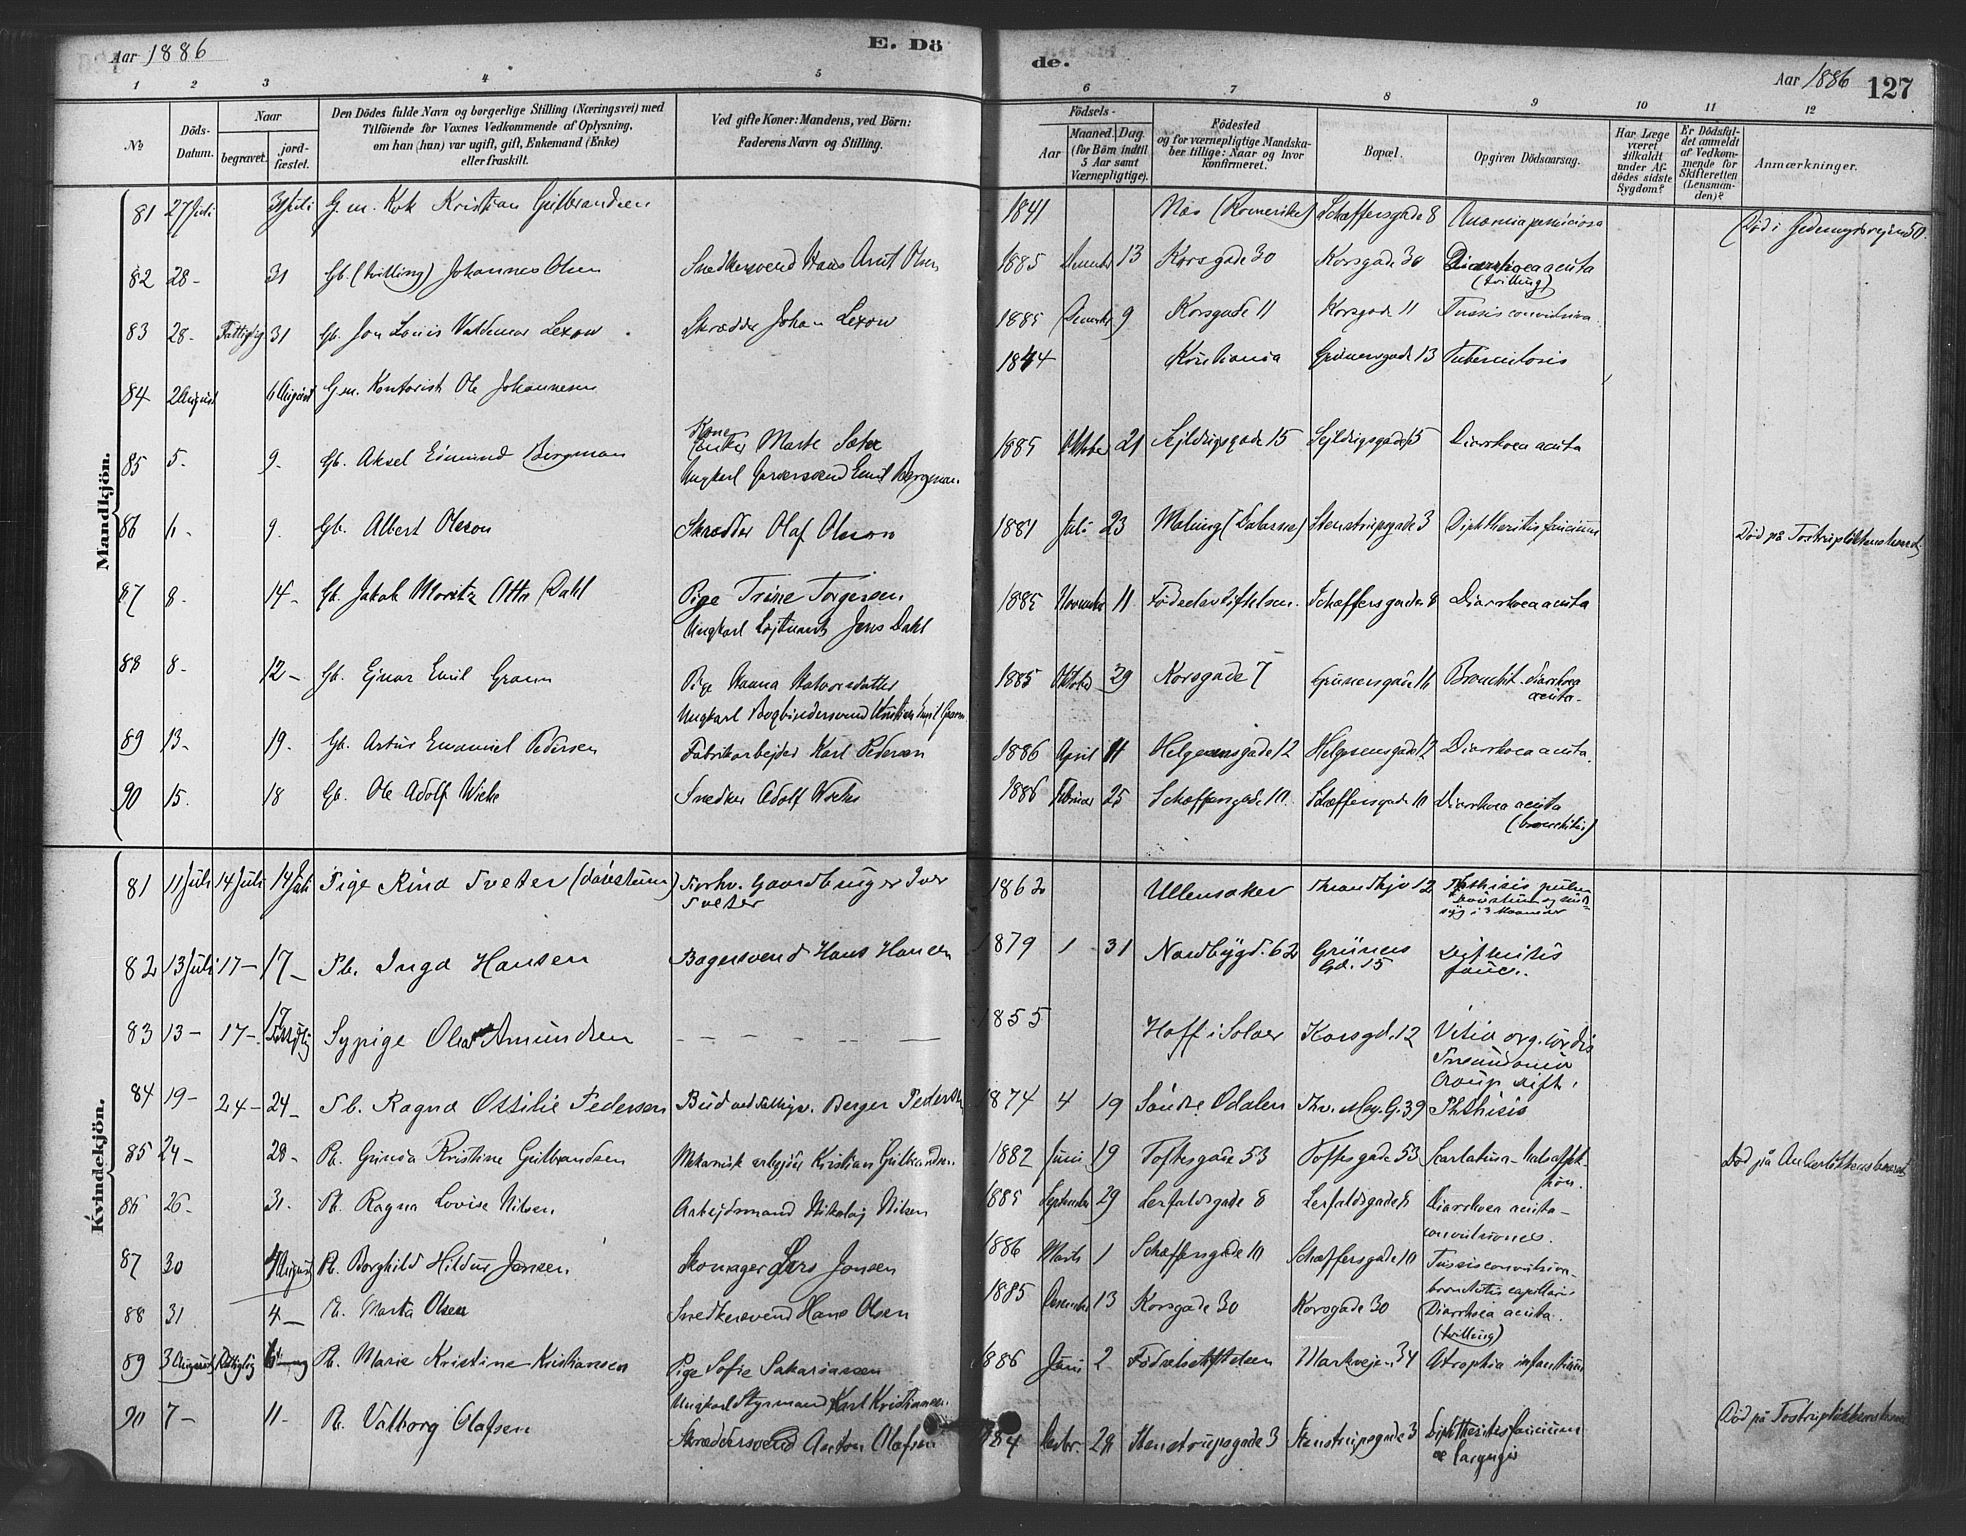 Aar 1886
E. Dö
de.
Aar 1886
127
1 2 3 4 5 6 7 8 9 10 11 12
No
Döds-Datum.
Naar
begravet.
jord-fæstet.
Den Dödes fulde Navn og borgerlige Stilling (Næringsvei) med
Tilföiende for Voxnes Vedkommende af Oplysning,
om han (hun) var ugift, gift, Enkemand (Enke)
eller fraskilt.
Ved gifte Koner: Mandens, ved Börn:
Faderens Navn og Stilling.
Födsels-
Aar
Maaned.
Dag.
(for Börn indtil
5 Aar samt
Værnepligtige).
Födested
og for værnepligtige Mandska-
ber tillige: Naar og hvor
konfirmeret.
Bopæl.
Opgiven Dödsaarsag.
Har Læge
været
tilkaldt
under Af-
dödes sidste
Sygdom?
Er Dödsfal-
det anmeldt
af Vedkom-
mende for
Skifteretten
(Lensman-
den)?
Anmærkninger.
Mandkjön.
81 27 Juli 31 Juli G.m. Kok Kristian Gulbrandsen 1841 Næs (Romerike) Schæffersgade 8 Anæmia perniciosa
82 28 - 31 Gb. (tvilling) Johannes Olsen Snedkersvend Hans Arnt Olsen 1885 December 13 Korsgade 30 Korsgade 30 Diarrhoea acuta
(tvilling)
83 28 - Fattiglig 31 Gb. Jon Louis Valdemar Lexow Skrædder Johan Lexow 1885 December 9 Korsgade 11 Korsgade 11 Tussis convulsiva
84 2 August 6 August G.m. Kontorist Ole Johannesen 1844 Kristiania Grünersgade 13 Tuberculosis
85 5 - 9 - Gb. Aksel Edmund Bergman Marte
Ungkarl Emil Bergman. 1885 Oktober 21 Sejldugsgade 15 Sejldugsgade 15 Diarrhoea acuta
86 6 - 9 - Gb. Albert Olsson Skrædder Olaf Olsson 1881 Juli 23 Malung (Dalarne) Stenstrupsgade 3 Diphtheritis faucium Död på Tostrupløkkens
87 8 - 14 - Gb. Jakob Moritz Otto Dahl Pige Trine Torgersen
Ungkarl Løjtnant Jens Dahl 1885 November 11 Fødselsstiftelsen Schæffersgade 8 Diarrhoea acuta
88 8 - 12 - Gb. Ejnar Emil Gram Pige Hanna Halvorsdatter
Ungkarl Bogbindersvend Kristian Emil Gram 1885 Oktober 29 Korsgade 7 Grünersgade 16 Bronchit. diarrhoea
acuta -
89 13 - 19 - Gb. Artur Emanuel Pedersen Fabrikarbejder Karl Pedersen 1886 April 11 Helgesensgade 12 Helgesensgade 12 Diarrhoea acuta
90 15 - 18 Gb. Ole Adolf Snedker Adolf 1886 Februar 25 Schæffersgade 10 Schæffersgade 10 Diarrhoea acuta
(bronchitis)
Kvindekjön.
81 11 Juli 14 Juli 14 Juli Pige Rina Tveter (døvstum) Forhv. Gaardbruger Iver
Tveter 1862 Ullensaker 12 Phthisis pulm
82 13 Juli 17 - 17 - Pb. Inga Hansen Bagersvend Hans Hansen 1879 1 31 Nordbygd. 62 Grüners
Gd. 15 Difthritis
fauc.
83 13 - 17 - 17 Sypige Olea Amundsen - - - - - 1855 Hoff i Solør Korsgd. 12 Vitia org. cordis
84 19 - 24 - 24 - Pb. Ragna Ottilie Pedersen Bud ved Berger Pedersen 1874 4 19 Søndre Odalen Thv. Mey. G. 39 Croup dift.
Phthisis
85 24 - 28 - Pb. Gunda Kristine Gulbrandsen Mekanisk arbejder Kristian Gulbrandsen 1882 Juni 19 Toftesgade 53 Toftesgade 53 Scarlatina - Død på Ankerløkkens
86 26 - 31 - Pb. Ragna Lovise Nilsen Arbejdsmand Nikolaj Nilsen 1885 September 29 Lerfaldsgade 8 Lerfaldsgade 8 Diarrhoea acuta -
convulsiones.
87 30 4 August Pb. Borghild Hildur Jansen Skomager Lars Jansen 1886 Marts 1 Schæffersgade 10 Schæffersgade 10 Tussis convulsiva -
bronchitis capillaris
88 31 4 - Pb. Marta Olsen Snedkersvend Hans Olsen 1885 December 13 Korsgade 30 Korsgade 30 Diarrhoea acuta.
(tvilling)
89 3 August Fattiglig 6 Pb. Marie Kristine Kristiansen Pige Sofie Sakariassen
Ungkarl Styrmand Karl Kristiansen 1886 Juni 2 Fødselsstiftelsen Markvejen 34 Atrophia infantum
90 7 - 11 - Pb. Valborg Olafsen Skræddersvend Anton Olafsen 29 Stenstrupsgade 3 Stenstrupsgade 3 Diphtheritis faucium
Død på Tostrupløkkens